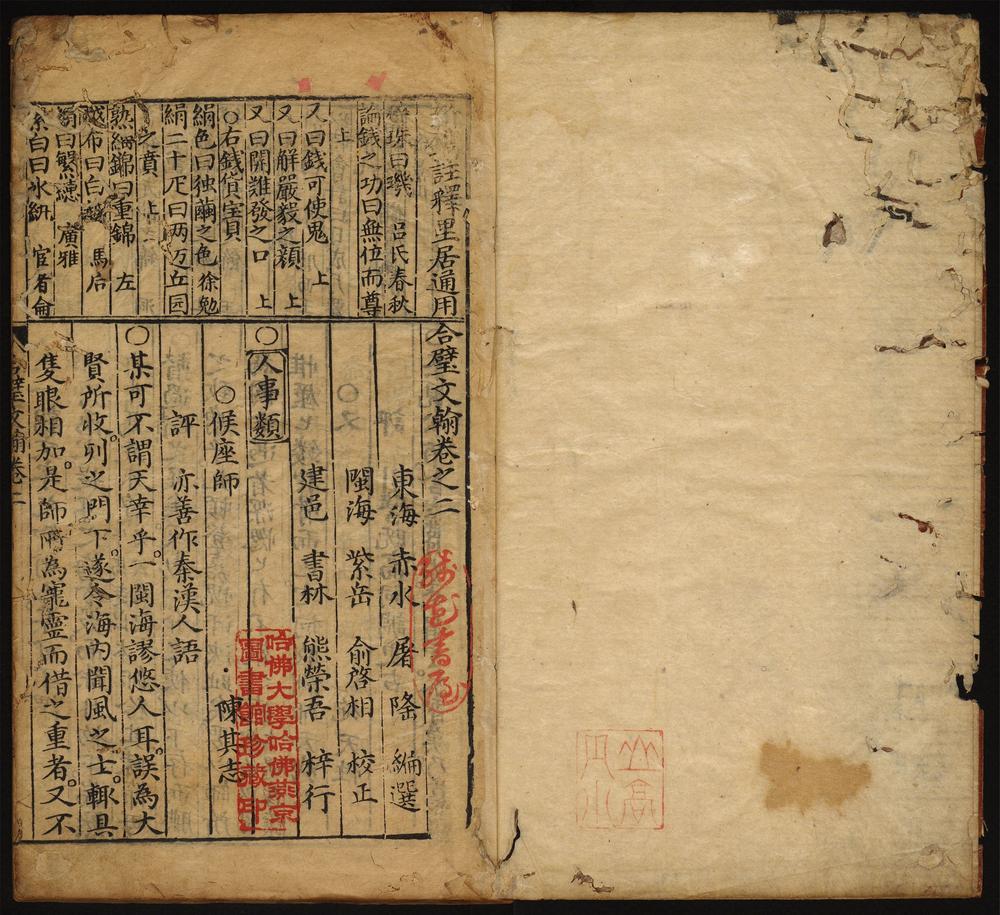 註釋里居通用
珠曰璣 呂氏春秋
論錢之功曰無位而尊
上
又曰錢可使鬼 上
又曰解嚴毅之顏 上
又曰開難發之口 上
○右錢貨宝貝
絹色曰独繭之色 徐勉
絹二十疋曰两 丘园
之賁 上
熟細錦曰重錦 左
越布曰白 馬后
絹曰繁總 廣雅
素白曰氷紈 宦者侖
合璧文翰卷之二
東海 赤水 屠隆 編選
閩海 紫岳 俞啓相 校正
建邑 書林 熊榮吾 梓行
○人事類
○候座師 陳其志
評 亦善作秦漢人語
○某可不謂天幸乎。一閩海謬悠人耳。誤為大
賢所收。列之門下。遂令海內聞風之士。輙具
隻眼相加。是師所為寵靈而借之重者。又不
合璧文翰卷二
哈佛大學哈佛燕京
圖書館珍藏印